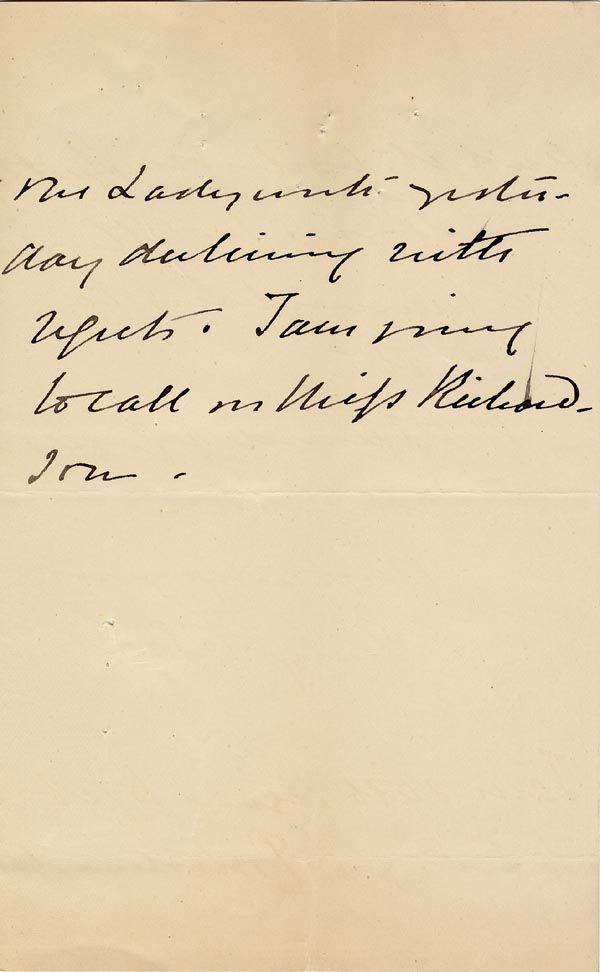 one Lady wrote yester-
day declining with
regrets. I am going
to call on Miss Richard-
son.